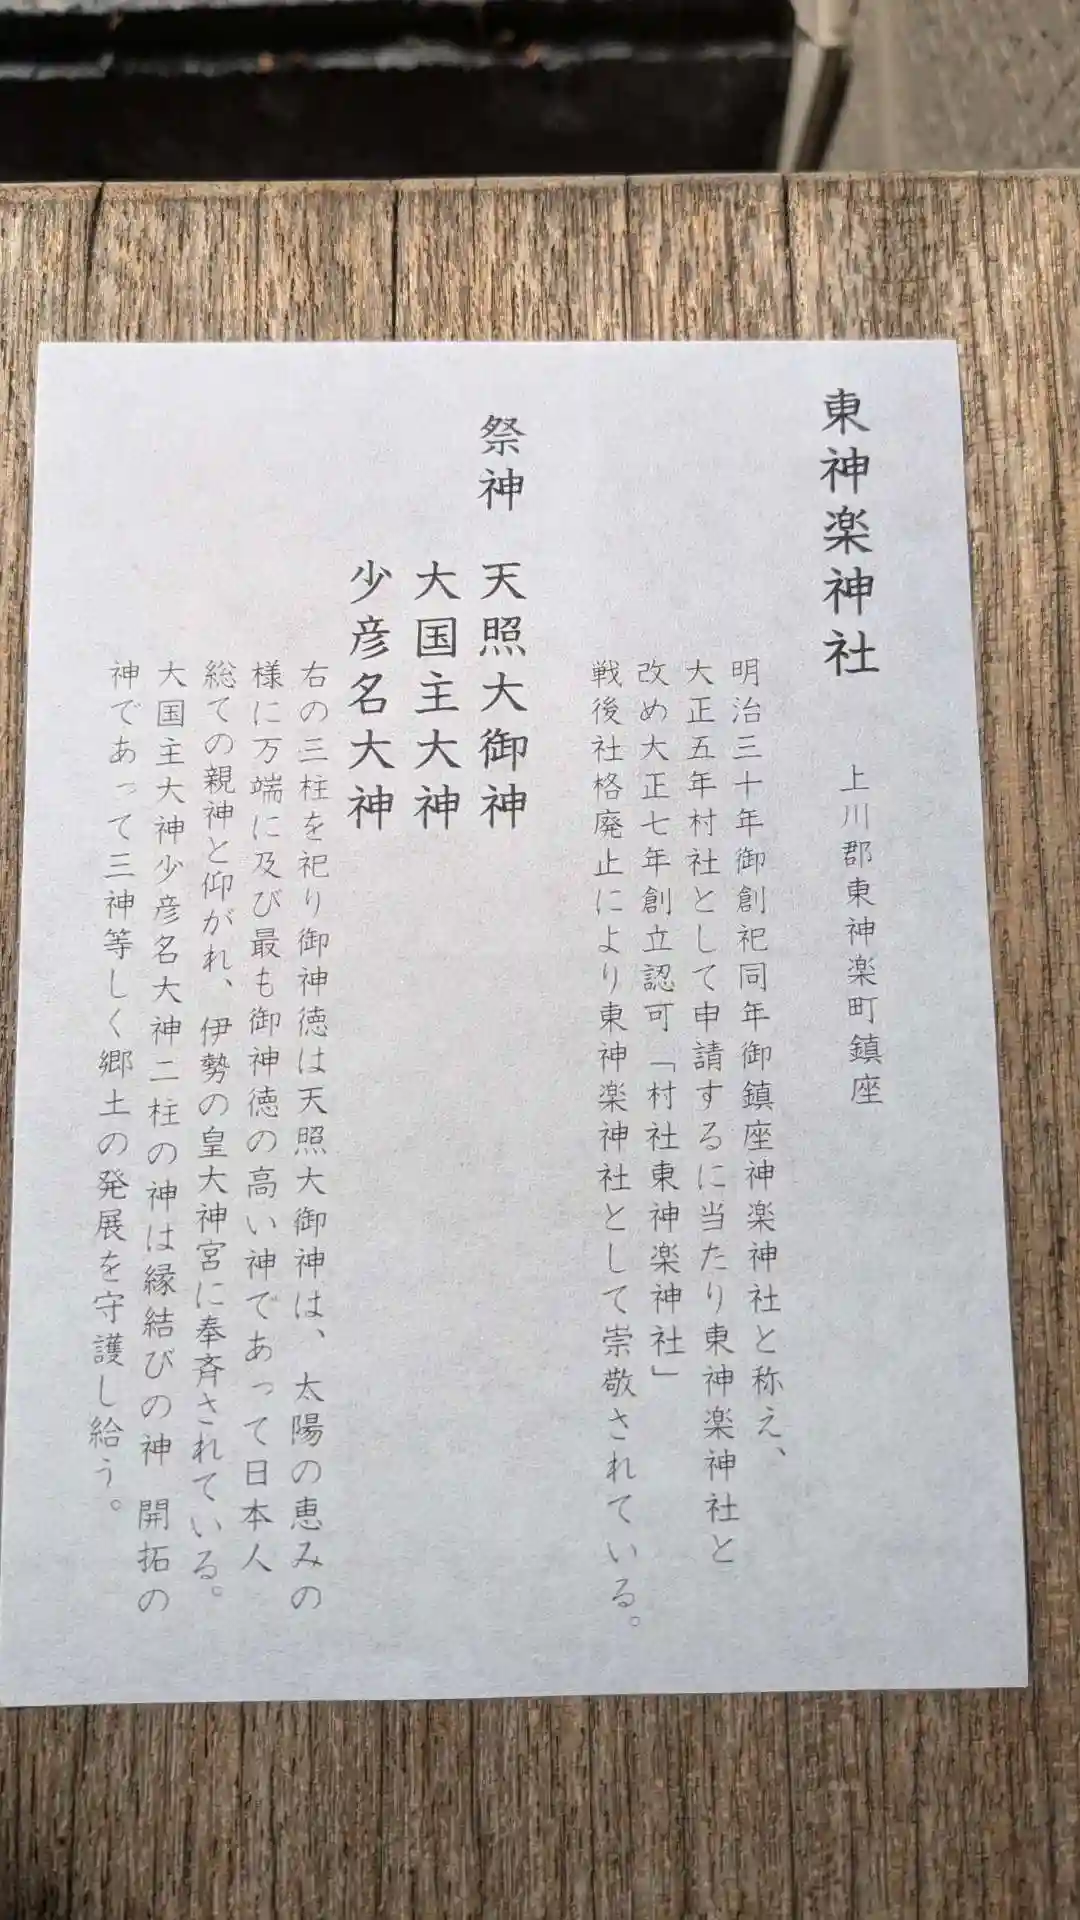 東神楽神社
上川郡東神楽町鎮座
明治三十年御創祀同年御鎮座神楽神社と称え、
大正五年村社として申請するに当たり東神楽神社と
改め大正七年創立認可「村社東神楽神社」
戦後社格廃止により東神楽神社として崇敬されている。
祭神 天照大御神
大国主大神
少彦名大神
右の三柱を祀り御神徳は天照大御神は、太陽の恵みの
様に万端に及び最も御神徳の高い神であって日本人
総ての親神と仰がれ、伊勢の皇大神宮に奉斉されている。
大国主大神少彦名大神二柱の神は縁結びの神 開拓の
神であって三神等しく郷土の発展を守護し給う。